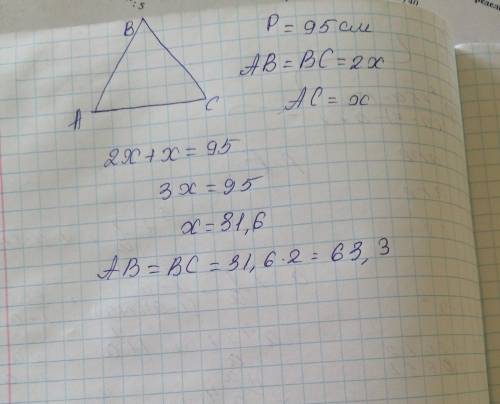 B
A
C
P = 95 см
AB = BC = 2x
AC = x
2x + x = 95
3x = 95
x = 31,6
AB = BC = 31,6 · 2 = 63,3